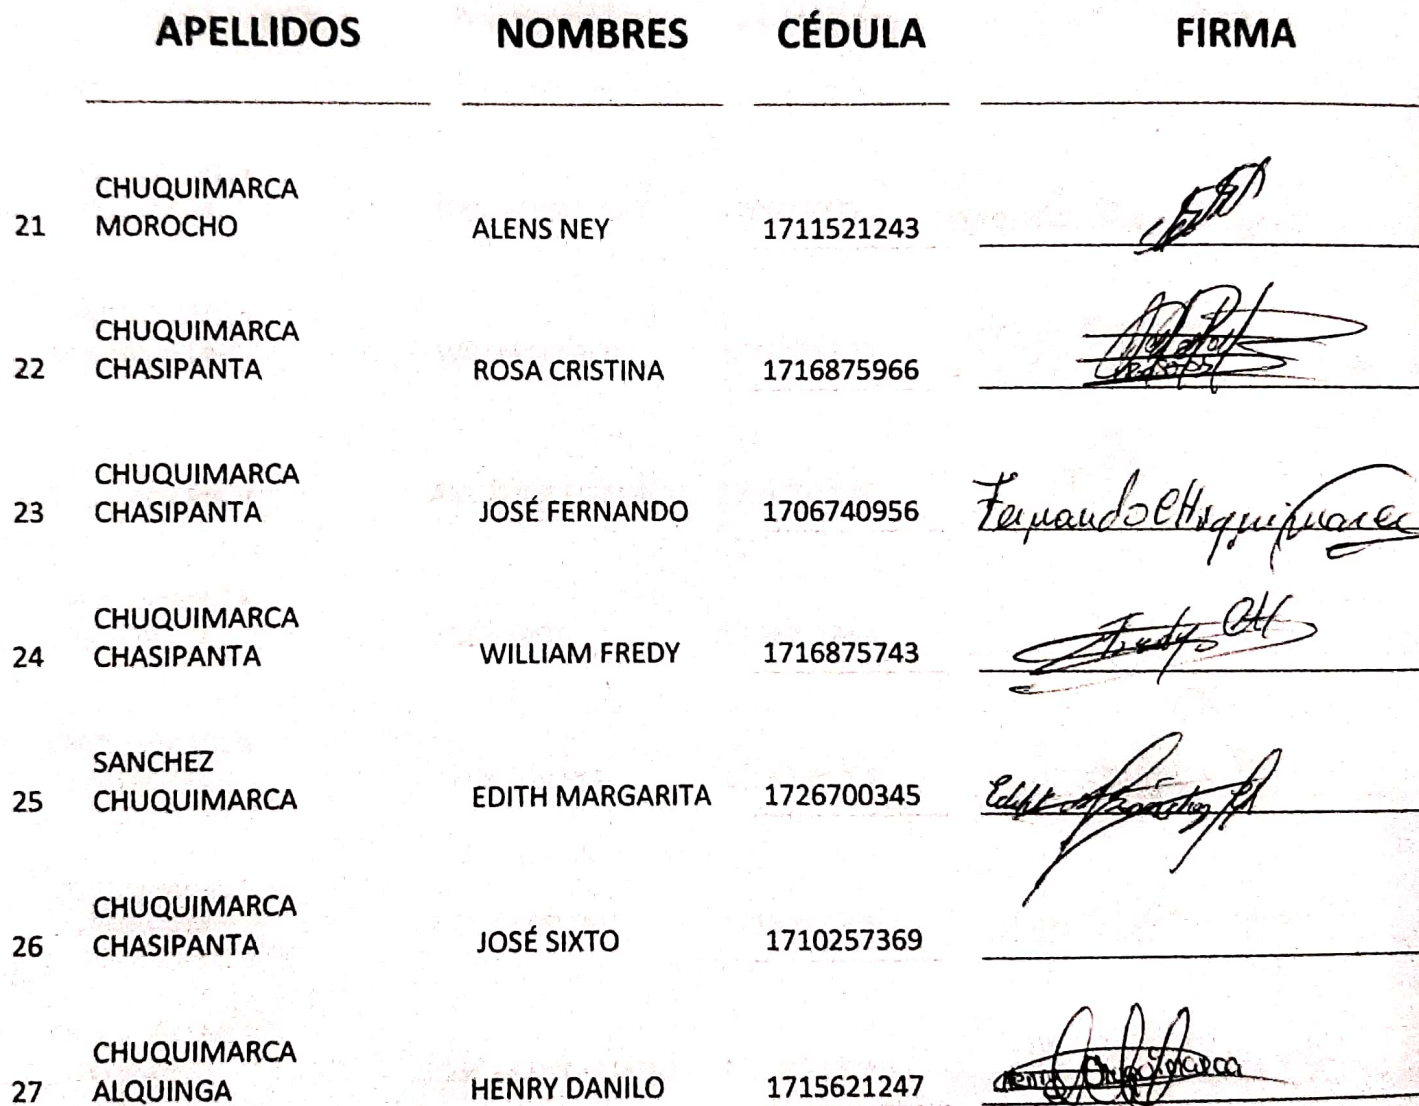 APELLIDOS NOMBRES CÉDULA FIRMA
CHUQUIMARCA
21 MOROCHO ALENS NEY 1711521243
CHUQUIMARCA
22 CHASIPANTA ROSA CRISTINA 1716875966
CHUQUIMARCA
23 CHASIPANTA JOSÉ FERNANDO 1706740956 Fernando CHuquimarca
CHUQUIMARCA
24 CHASIPANTA WILLIAM FREDY 1716875743 Fredy CH
SANCHEZ
25 CHUQUIMARCA EDITH MARGARITA 1726700345
CHUQUIMARCA
26 CHASIPANTA JOSÉ SIXTO 1710257369
CHUQUIMARCA
27 ALQUINGA HENRY DANILO 1715621247 Henry Chuquimarca